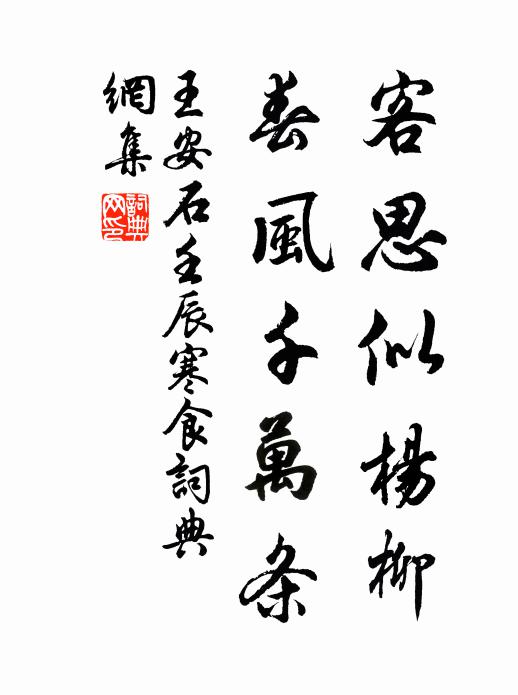 客思似楊柳
春風千萬条
王安石壬辰寒食詞典
網集
詞典
网印